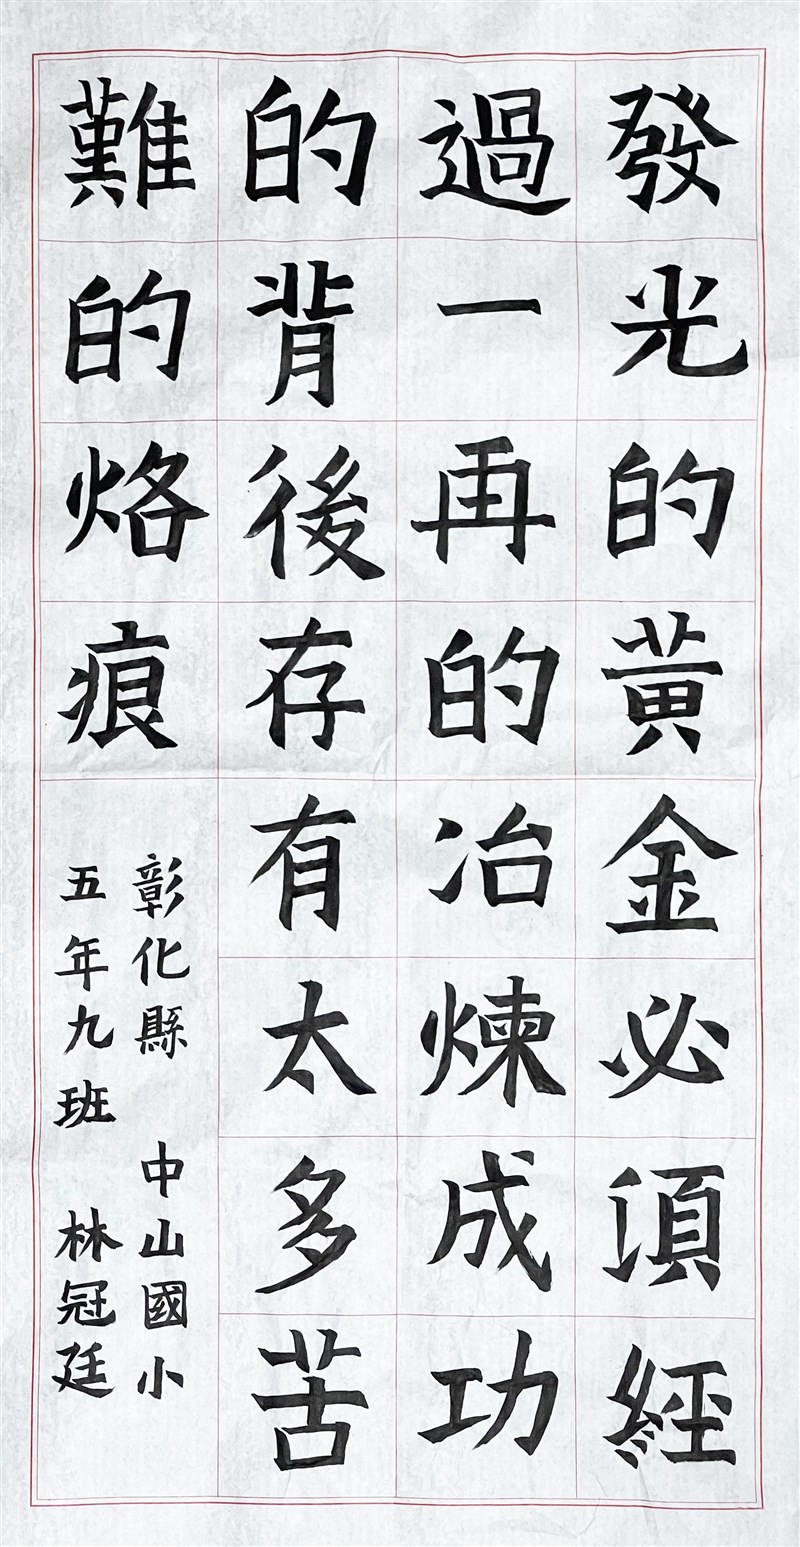 發光的黃金必須經
過一再的冶煉成功
的背後存有太多苦
難的烙痕
彰化縣 中山國小
五年九班 林冠廷